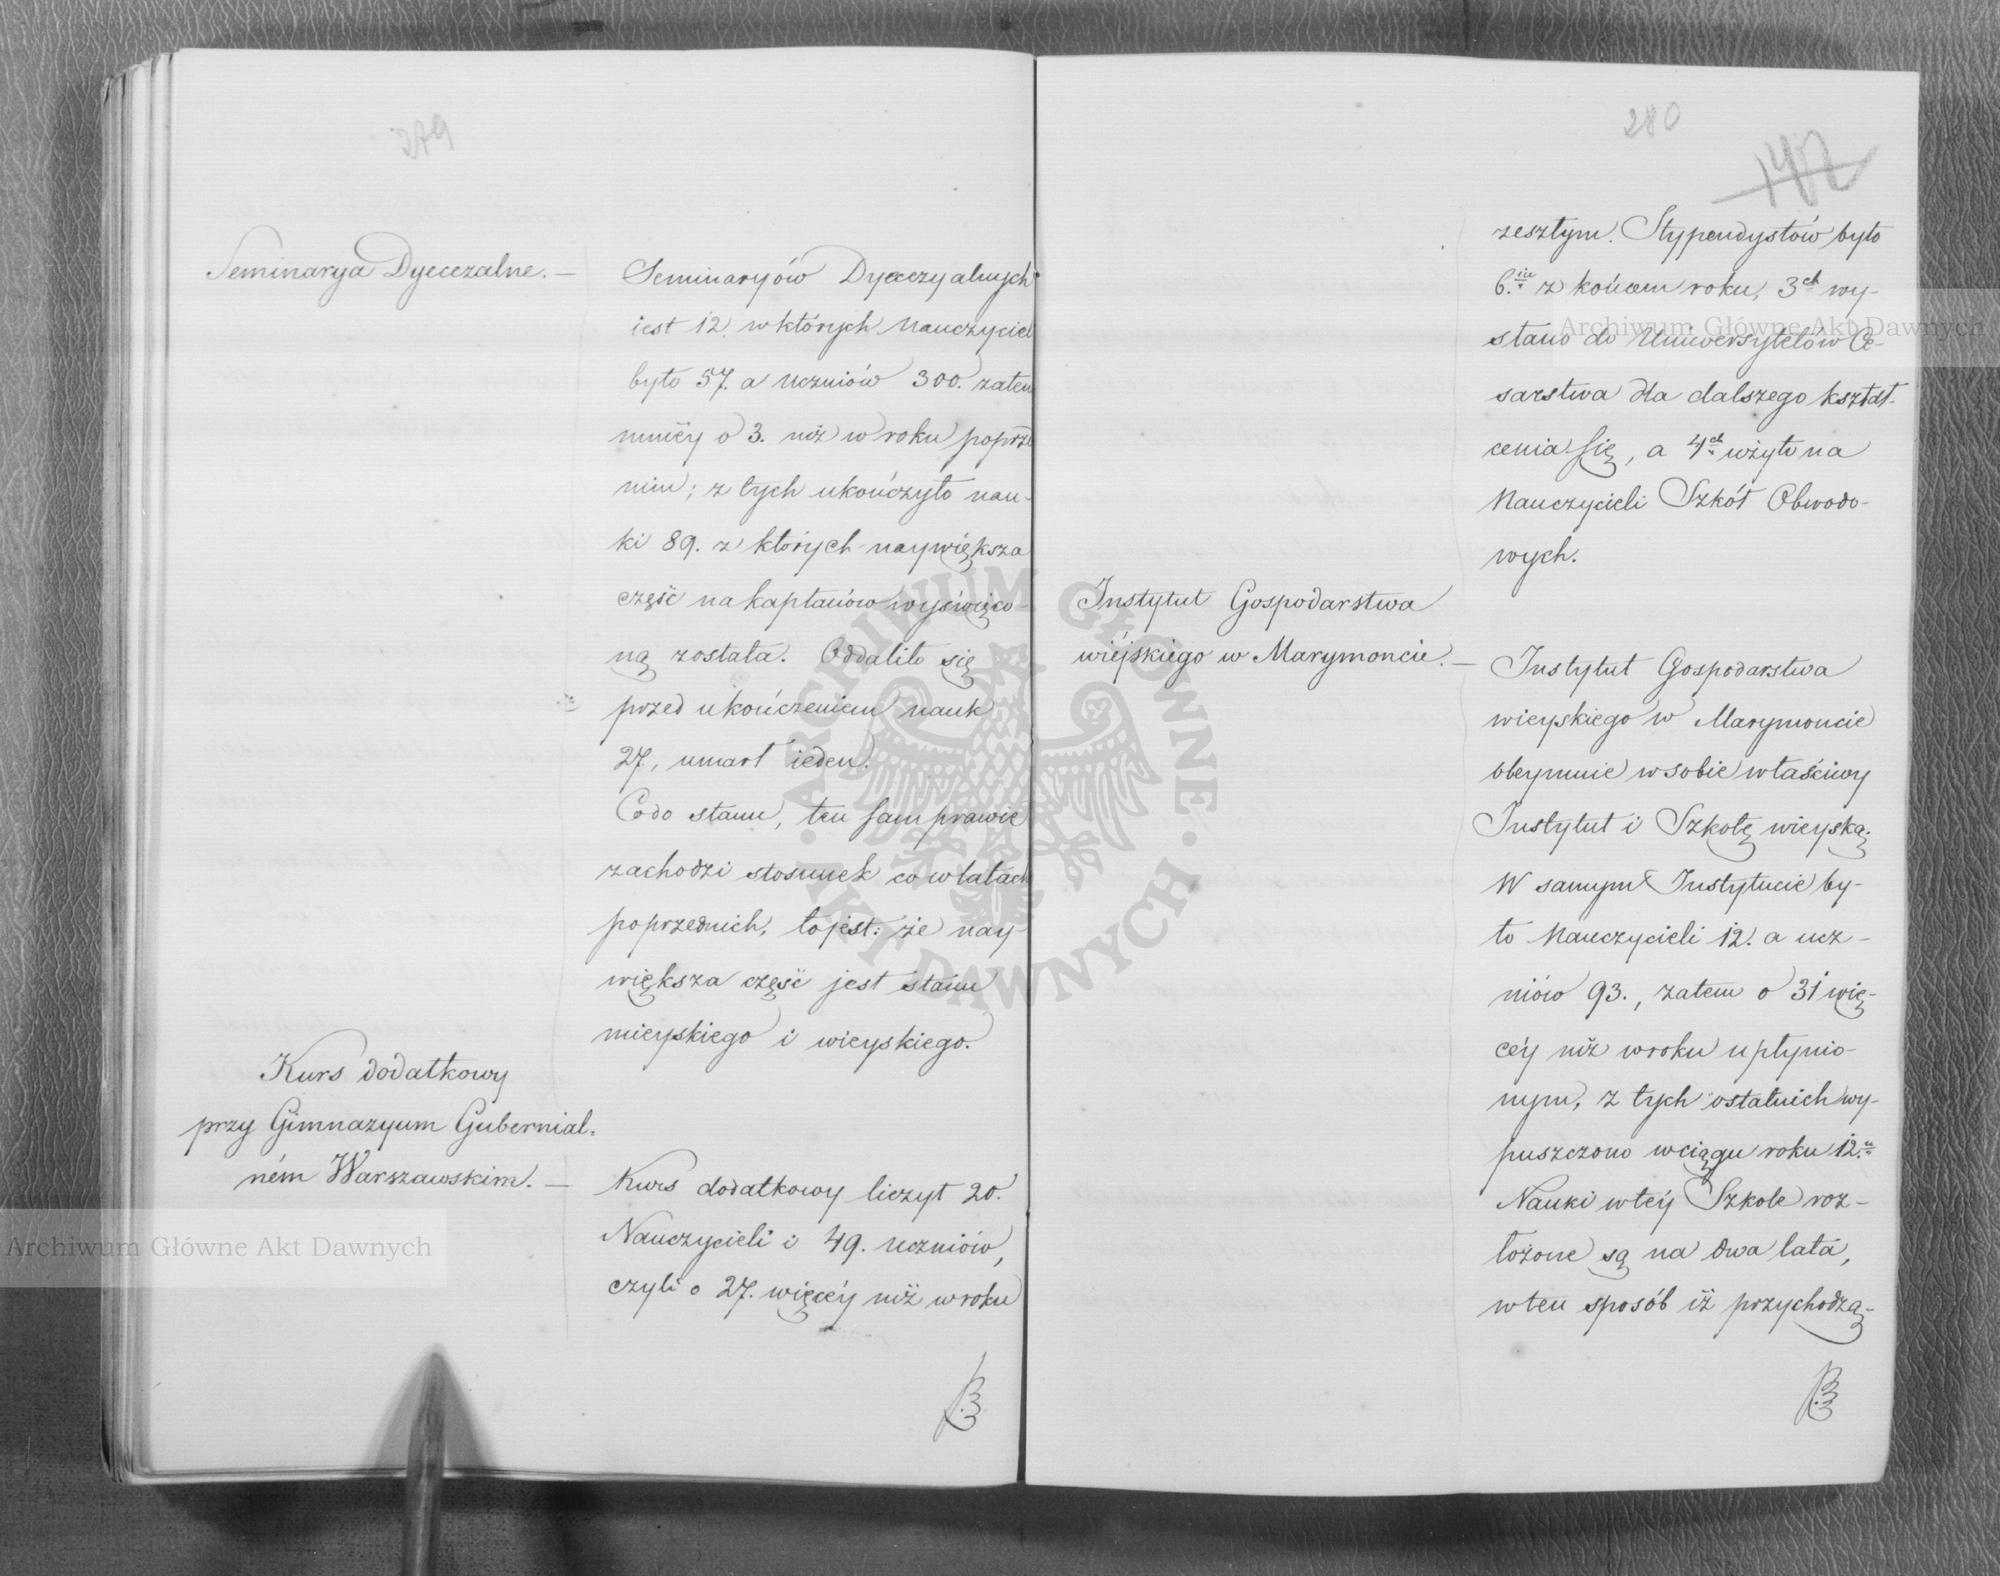 279
Seminarya Dyecezalne. —
Seminaryów Dyecezyalnych
iest 12 w których Nauczycieli
było 57. a Uczniów 300. zatem
mniéy o 3. niż w roku poprze
nim; z tych ukończyło nau-
ki 89. z których naywiększa
część na kapłanów wyświęco-
ną została. Oddaliło się
przed ukończeniem nauk
27, umarł ieden.
Co do stanu, ten sam prawie
zachodzi stosunek co w latach
poprzednich, to jest: że nay-
większa część jest stanu
mieyskiego i wieyskiego.
Kurs dodatkowy
przy Gimnazyum Gubernial-
ném Warszawskim. —
Kurs dodatkowy liczył 20.
Nauczycieli i 49. Uczniów,
czyli o 27. więcéy niż w roku
280
142
zeszłym. Stypendystów było
6. z końcem roku, 3ch wy-
słano do Uniwersytetów Ce-
sarstwa dla dalszego kształ-
cenia się, a 4ch użyto na
Nauczycieli Szkół Obwodo-
wych.
Instytut Gospodarstwa
wiéjskiego w Marymoncie. —
Instytut Gospodarstwa
wieyskiego w Marymoncie
obeymuie w sobie właściwy
Instytut i Szkołę wieyską.
W samym Instytucie by-
ło Nauczycieli 12. a ucz-
niów 93., zatem o 31 wię-
céy niż w roku upłynio-
nym, z tych ostatnich wy-
puszczono w ciągu roku 12.
Nauki w téy Szkole roz-
łożone są na dwa lata,
w ten sposób iż przychodzą-
Archiwum Główne Akt Dawnych
Archiwum Główne Akt Dawnych
ARCHIWUM GŁÓWNE AKT DAWNYCH